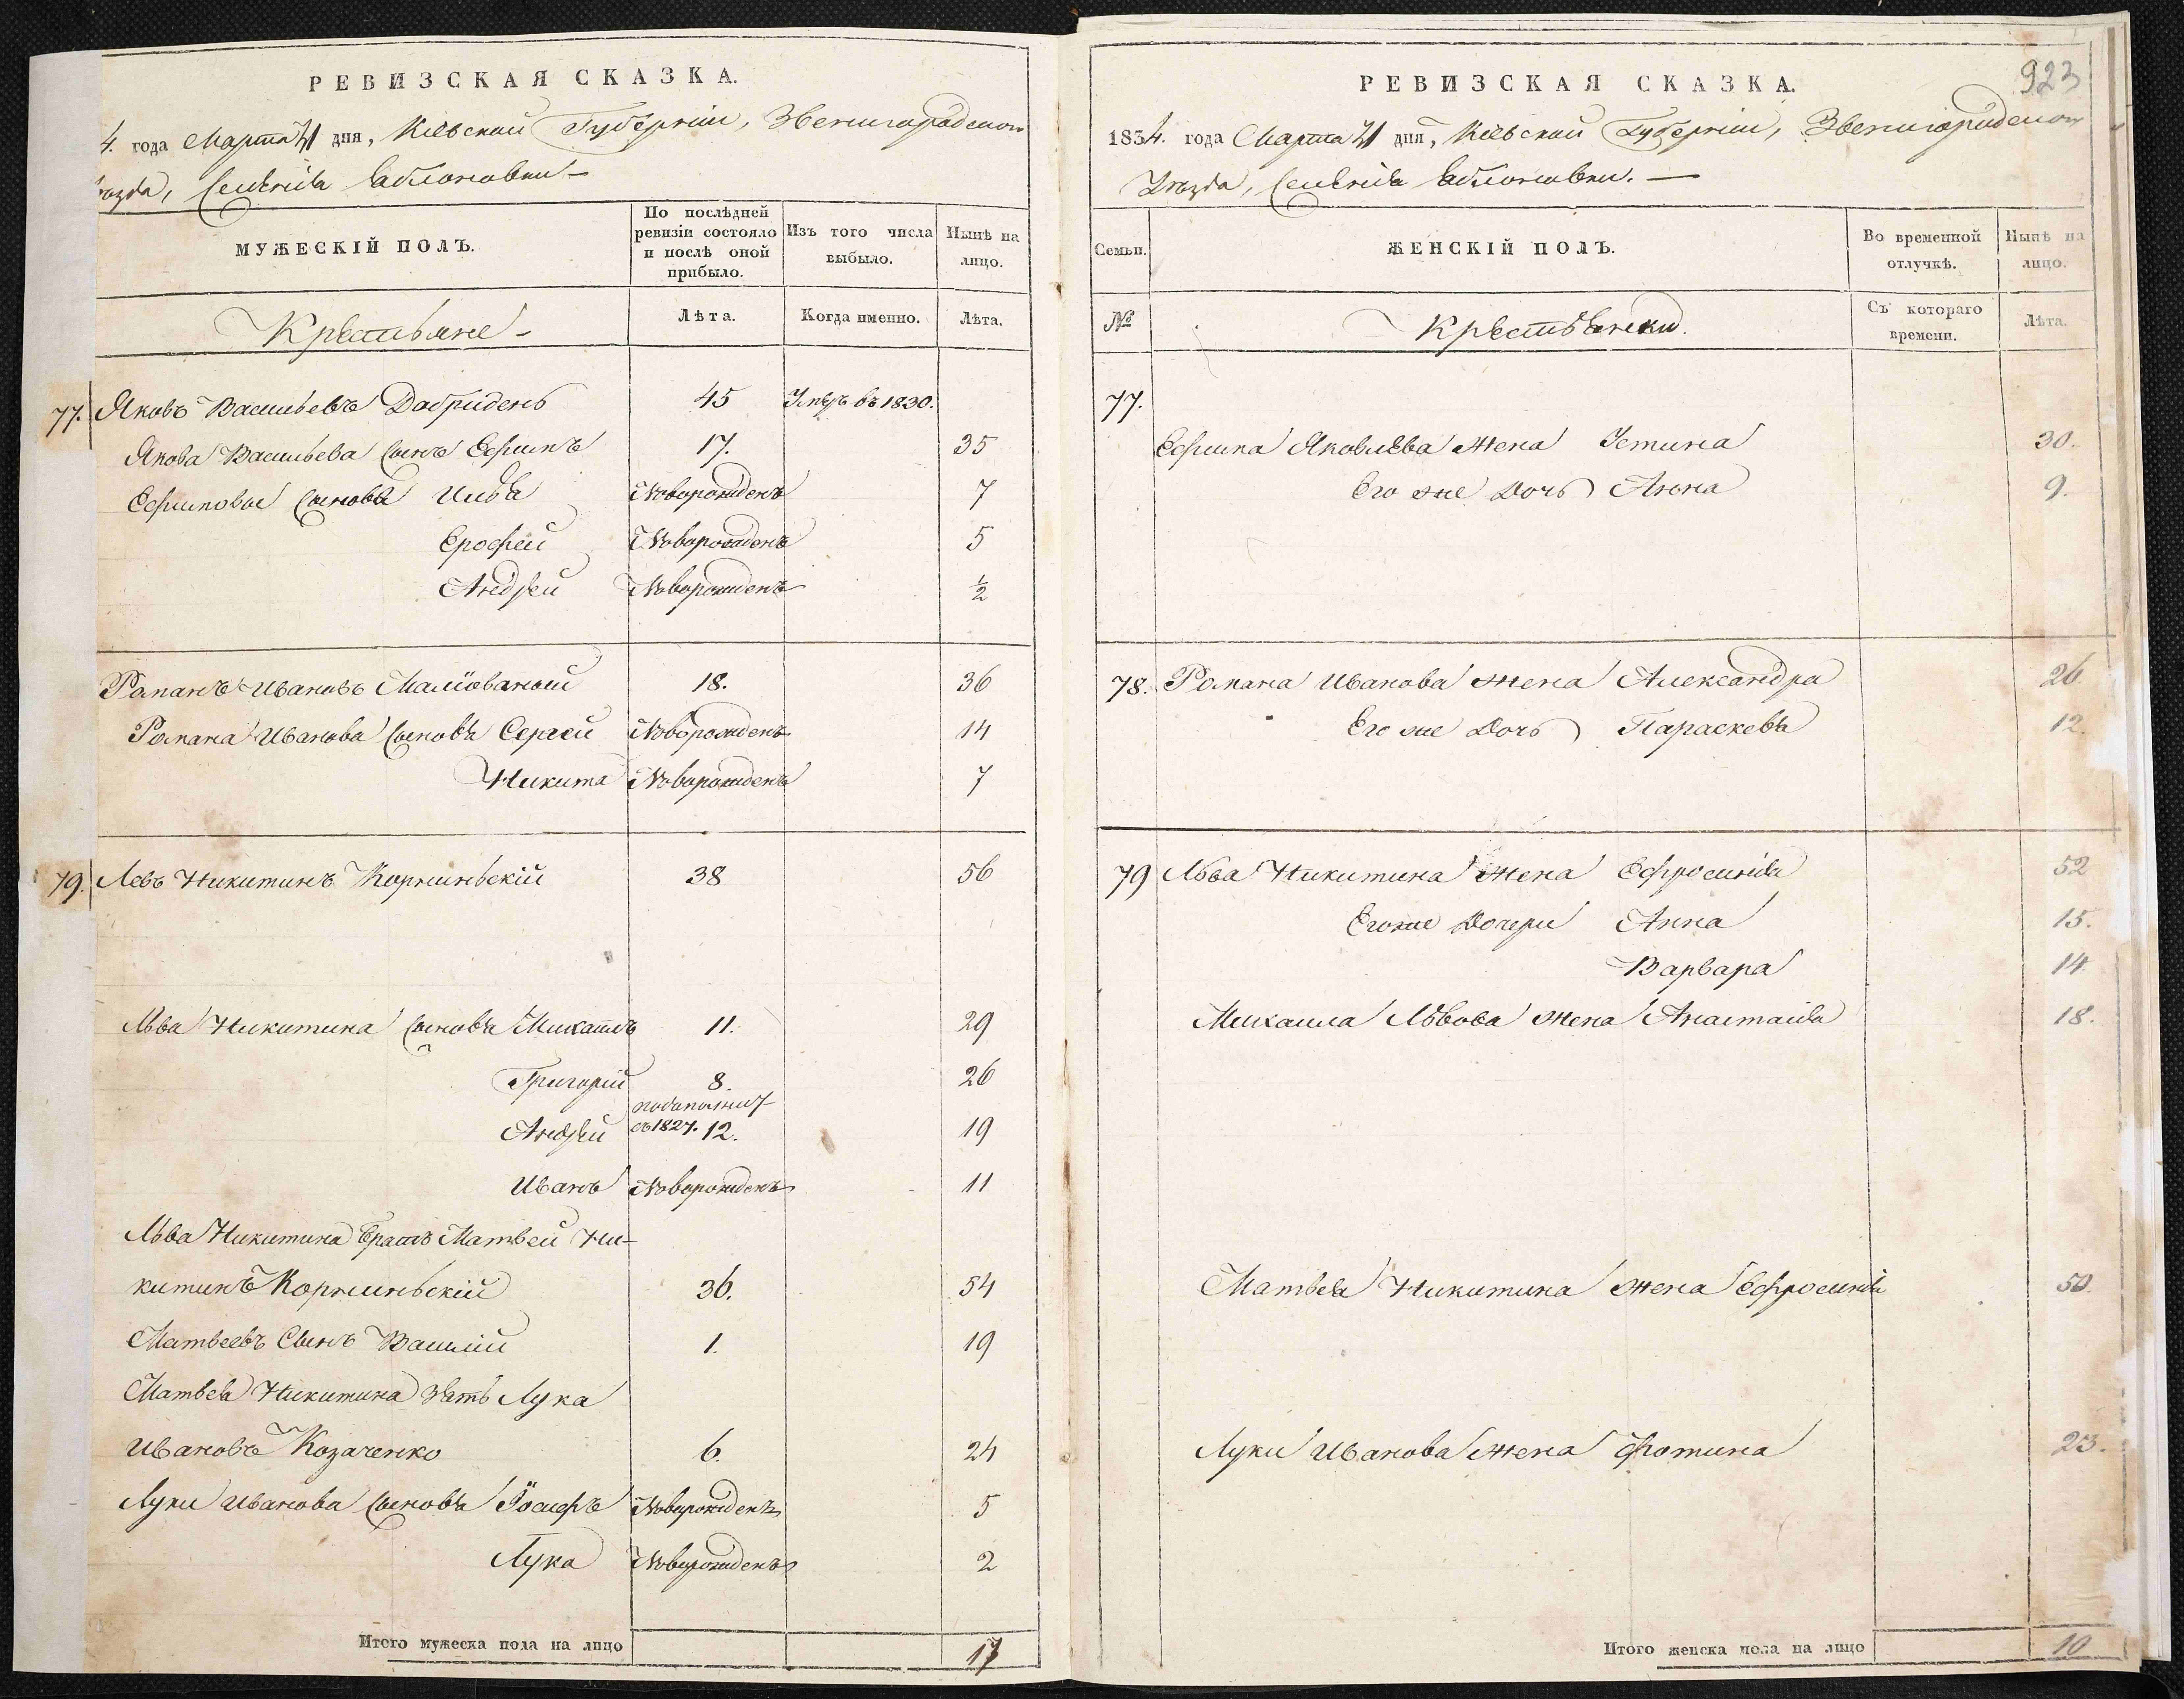 РЕВИЗСКАЯ СКАЗКА.
4. года Марта 31 дня, Кіевской Губерніи, Звенигородскаго
ѣзда, Селенія Яблоновки —
МУЖЕСКІЙ ПОЛЪ.
По послѣдней ревизіи состояло и послѣ оной прибыло.
Изъ того числа выбыло.
Нынѣ на лицо.
Крестьяне —
Лѣта.
Когда именно.
Лѣта.
77. Яковъ Васильевъ Добридень 45 Умеръ въ 1830.
Якова Васильева сынъ Ефимъ 17. 35
Ефимовы сыновья Илья Новорожденъ 7
Ерофей Новорожденъ 5
Андрей Новорожденъ ½
Романъ Ивановъ Малiованый 18. 36
Романа Иванова сыновья Сергей Новорожденъ 14
Никита Новорожденъ 7
79. Левъ Никитинъ 38 56
Льва Никитина сыновья Михаилъ 11. 29
Григорій 8. 26
Андрей съ 1827. 12. 19
Иванъ Новорожденъ 11
Льва Никитина братъ Матвей Ни-
китинъ 36. 54
Матвеевъ Сынъ Василій 1. 19
Матвея Никитина зять Лука
Ивановъ Козаченко 6. 24
Луки Иванова сыновья Іосифъ Новорожденъ 5
Лука Новорожденъ 2
Итого мужеска пола на лицо 17
923
РЕВИЗСКАЯ СКАЗКА.
1834. года Марта 31 дня, Кіевской Губерніи, Звенигородскаго
Уѣзда, Селенія Яблоновки. —
Семьи.
ЖЕНСКІЙ ПОЛЪ.
Во временной отлучкѣ.
Нынѣ на лицо.
№
Крестьянки.
Съ котораго времени.
Лѣта.
77.
Ефима Яковлева жена Устина 30.
Его же дочь Анна 9.
78. Романа Иванова жена Александра 26
Его же дочь Параскева 12.
79 Льва Никитина жена Ефросинія 52
Его же дочери Анна 15.
Варвара 14
Михаила Львова жена Анастасія 18.
Матвея Никитина жена Ефросинія 50.
Луки Иванова жена Фотина 23.
Итого женска пола на лицо 10